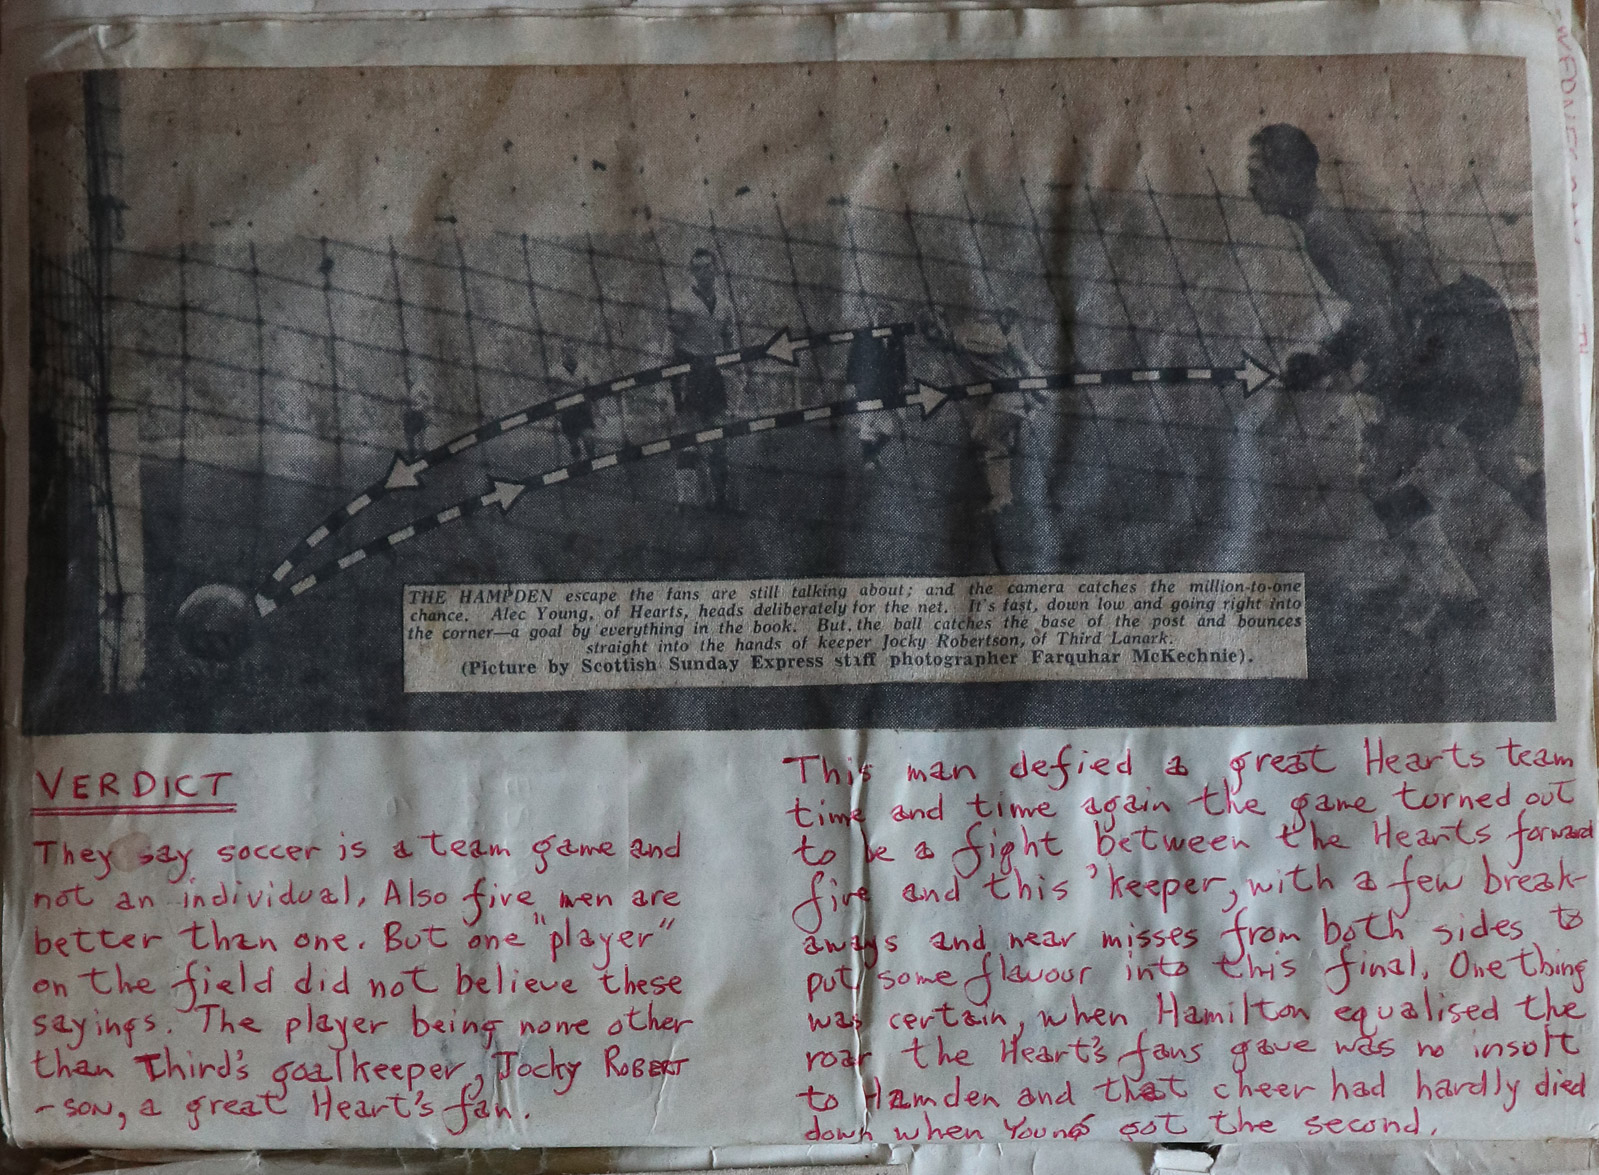 THE HAMPDEN escape the fans are still talking about; and the camera catches the million-to-one
chance. Alec Young, of Hearts, heads deliberately for the net. It's fast, down low and going right into
the corner—a goal by everything in the book. But the ball catches the base of the post and bounces
straight into the hands of keeper Jocky Robertson, of Third Lanark.
(Picture by Scottish Sunday Express staff photographer Farquhar McKechnie).
VERDICT
They say soccer is a team game and
not an individual, Also five men are
better than one. But one "player"
on the field did not believe these
sayings. The player being none other
than Third's goalkeeper, Jocky ROBERT
-SON, a great Heart's fan.
This man defied a great Hearts team
time and time again the game turned out
to be a fight between the Hearts forward
five and this 'keeper, with a few break-
aways and near misses from both sides to
put some flavour into this final. One thing
was certain, when Hamilton equalised the
roar the Heart's fans gave was no insult
to Hamden and that cheer had hardly died
down when Young got the second.